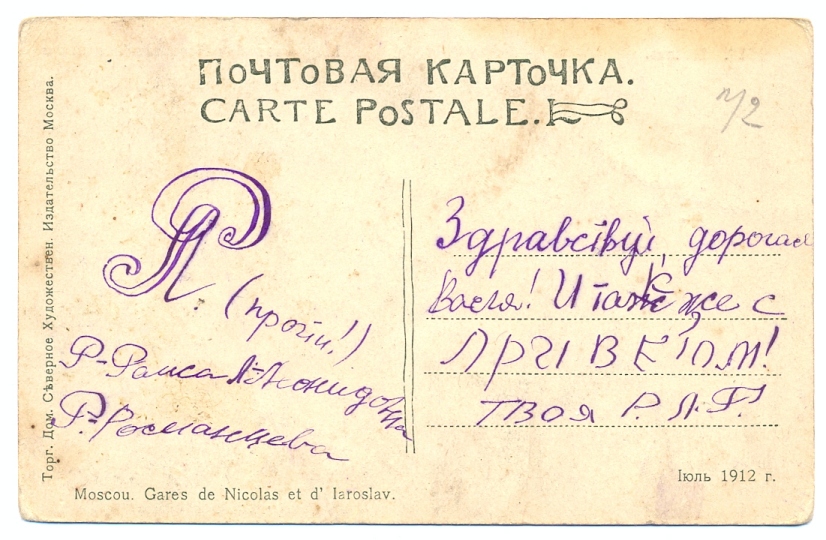 ПОЧТОВАЯ КАРТОЧКА.
CARTE POSTALE.
Торг. Дом. Сѣверное Художествен. Издательство Москва.
Р Л. (прочти!)
Р-Раиса Л-Леонидовна
Р.-Романцева
Здравствуй, дорогая
Вася! И также с
ПРИВЕТОМ!
ТВОЯ Р. Л. Р.
Іюль 1912 г.
Moscou. Gares de Nicolas et d' Iaroslav.